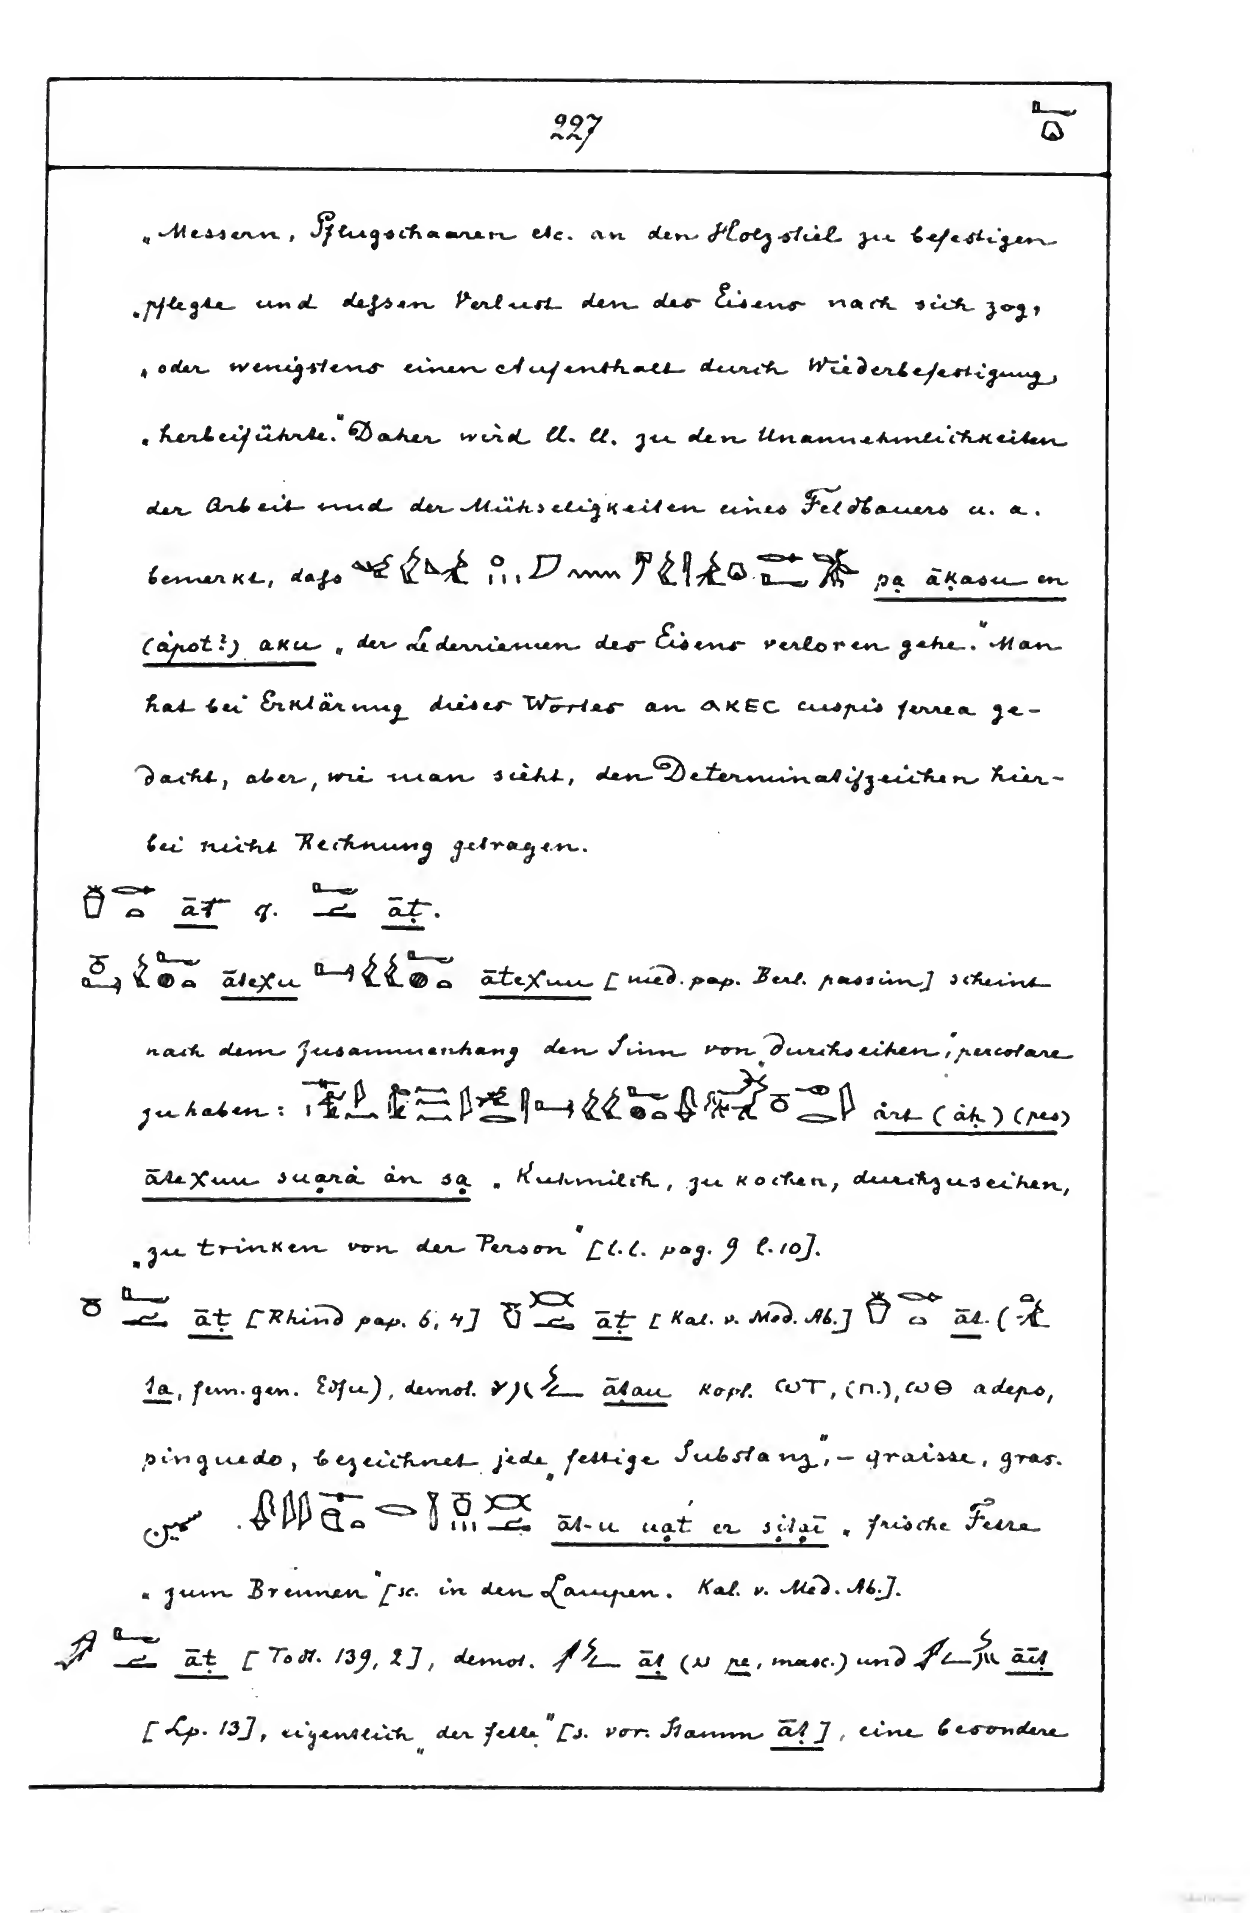 227
„Messern, Pflugschaaren etc. an den Holzstiel zu befestigen
„pflegte und dessen Verlust den des Eisens nach sich zog,
„oder wenigstens einen Aufenthalt durch Wiederbefestigung,
„herbeiführte.“ Daher wird ll. ll. zu den Unannehmlichkeiten
der Arbeit und der Mühseligkeiten eines Feldbauers u. a.
bemerkt, dass pạ āḳasu en
(ȧpot?) aku „der Lederriemen des Eisens verloren gehe.“ Man
hat bei Erklärung dieses Wortes an ⲁⲕⲉⲥ cuspis ferrea ge-
dacht, aber, wie man sieht, den Determinatifzeichen hier-
bei nicht Rechnung getragen.
āt q. āṭ.
ātexu ātexuu [med. pap. Berl. passim] scheint
nach dem Zusammenhang den Sinn von „durchseihen“, percolare
zu haben: ȧrt (ȧḥ) (pes)
ātexuu suạrȧ ȧn sạ „Kuhmilch, zu kochen, durchzuseihen,
„zu trinken von der Person“ [l.l. pag. 9 l. 10].
āṭ [Rhind pap. 6, 4] āṭ [Kal. v. Med. Ab.] āt. (
ta, fem. gen. Edfu), demot. āṭau kopt. ⲱⲧ, (ⲡ.), ⲱⲑ adeps,
pinguedo, bezeichnet jede „fettige Substanz“, – graisse, gras.
سمين āt-u uạt́ er sịṭạī „frische Fette
„zum Brennen“ [sc. in den Lampen. Kal. v. Med. Ab.].
āṭ [Todt. 139, 2], demot. āṭ (pe, masc.) und āīṭ
[Lp. 13], eigentlich „der fette“ [s. vor. Stamm āṭ], eine besondere